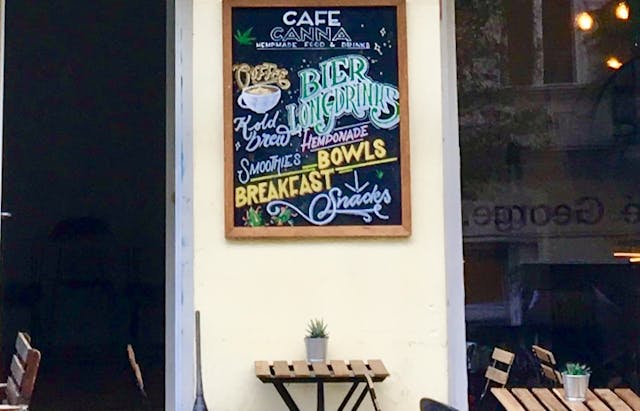 CAFE
CANNA
HEMPMADE FOOD & DRINKS
COFFEE
BIER
LONGDRINKS
Kold
Brew
HEMPONADE
SMOOTHIES
BOWLS
BREAKFAST
Snacks
George